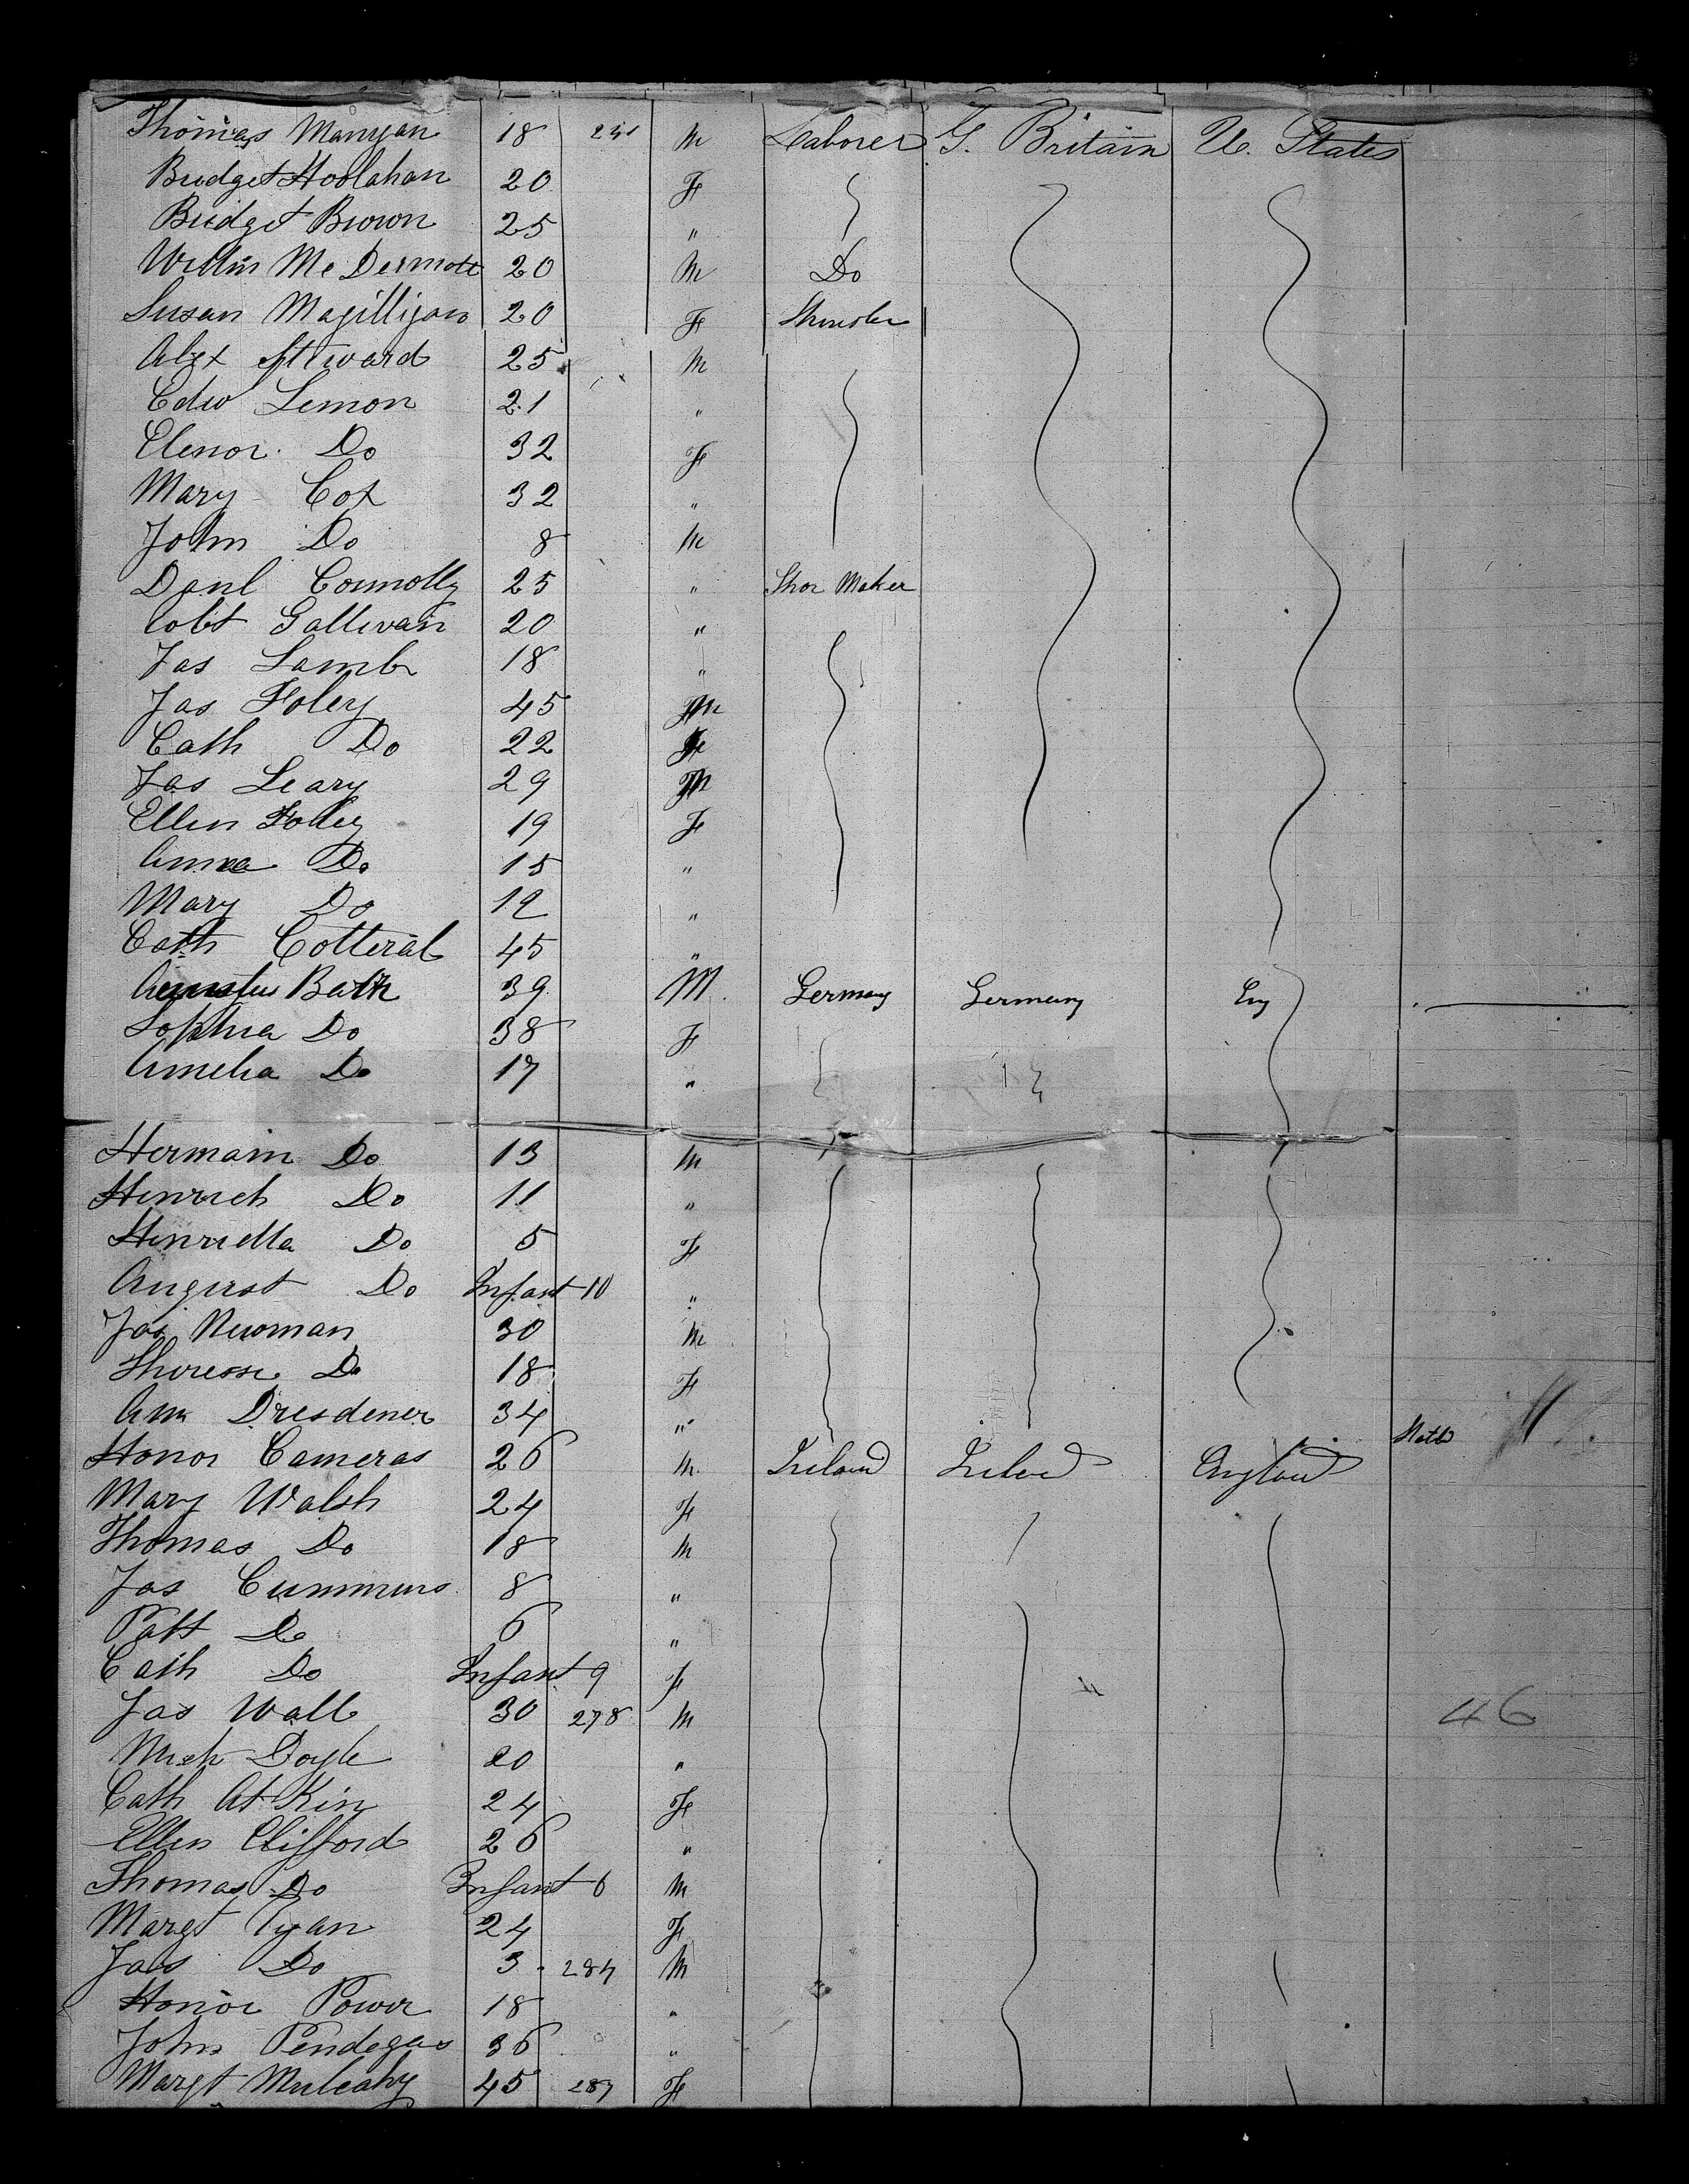 Thomas Mangan 18 231 M Laborer G. Britain U. States
Bridget Hoolahan 20 F
Bridget Brown 25 "
Willm Mc Dermott 20 M Do
Susan Magilligan 20 F
Alex Steward 25 M
Edw Lemon 21 "
Elenor Do 32 F
Mary Cox 32 "
John Do 8 M
Danl Connolly 25 " Shoe Maker
Robt Gallivan 20 "
Jas Lamb 18 "
Jas Foley 45 M
Cath Do 22 F
Jas Leary 29 M
Ellen Foley 19 F
Anna Do 15 "
Mary Do 12 "
Cath Cotteral 45 "
Bath 39 M. Germany Germany Eng
Sophia Do 38 F
Amelia Do 17 "
Hermain Do 13 M
Henrich Do 11 "
Henrietta Do 5 F
August Do Infant 10 "
Jas Newman 30 M
Do 18 F
Ann Dresdener 34 "
Honor Cameras 26 M. Ireland Ireland England
Mary Walsh 24 F
Thomas Do 18 M
Jas Cummins 8 "
Patt Do 6 "
Cath Do Infant 9 F
Jas Wall 30 278 M 46
Mich Doyle 20 "
Cath Atkin 24 F
Ellen Clifford 26 "
Thomas Do Infant 6 M
Margt 24 F
Jas Do 3 284 M
Honor Power 18 "
John Pendegas 36 "
Margt Mulcahy 45 287 F